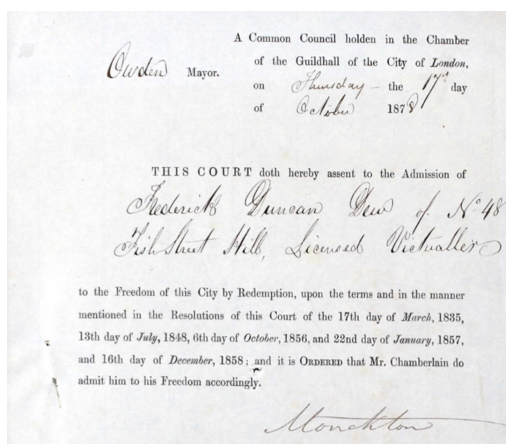 A Common Council holden in the Chamber
of the Guildhall of the City of London,
Owden Mayor.
on Thursday – the 17th day
of October 1878
THIS COURT doth hereby assent to the Admission of
Frederick Duncan Dew of No 48
Fish Street Hill, Licensed Victualler
to the Freedom of this City by Redemption, upon the terms and in the manner
mentioned in the Resolutions of this Court of the 17th day of March, 1835,
13th day of July, 1848, 6th day of October, 1856, and 22nd day of January, 1857,
and 16th day of December, 1858; and it is ORDERED that Mr. Chamberlain do
admit him to his Freedom accordingly.
Monckton